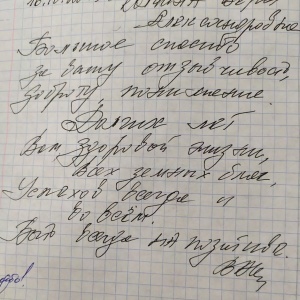 Александровна
Большое спасибо
за вашу отзывчивость,
доброту, понимание.
Долгих лет
Вам, здоровой жизни,
Всех земных благ,
Успехов всегда и
во всём.
Быть всегда на позитиве.